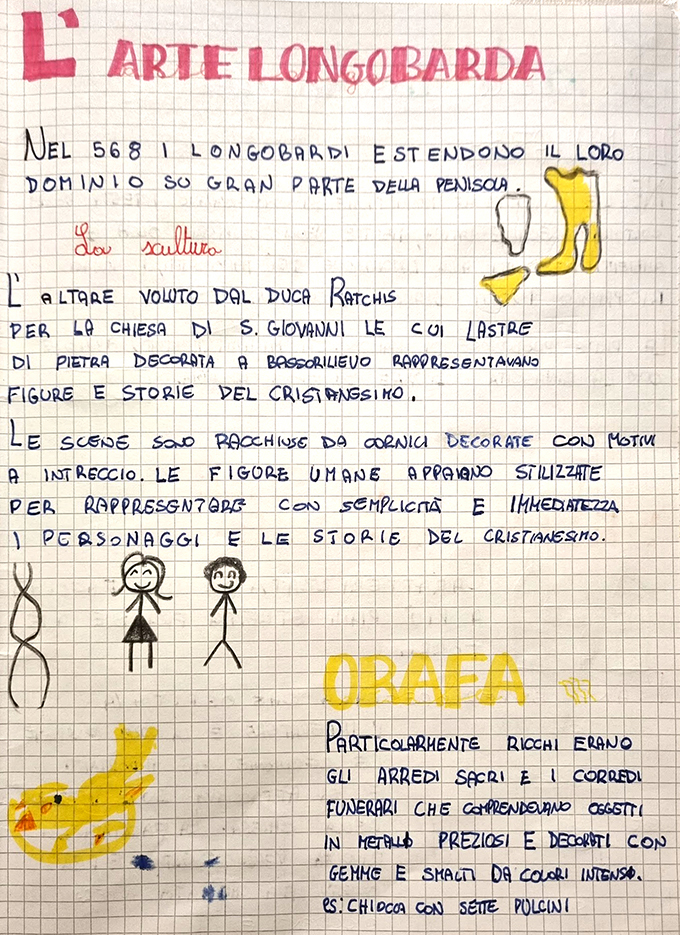 L' ARTE LONGOBARDA
NEL 568 I LONGOBARDI ESTENDONO IL LORO
DOMINIO SU GRAN PARTE DELLA PENISOLA.
La scultura
L'ALTARE VOLUTO DAL DUCA RATCHIS
PER LA CHIESA DI S. GIOVANNI LE CUI LASTRE
DI PIETRA DECORATA A BASSORILIEVO RAPPRESENTAVANO
FIGURE E STORIE DEL CRISTIANESIMO.
LE SCENE SONO RACCHIUSE DA CORNICI DECORATE CON MOTIVI
A INTRECCIO. LE FIGURE UMANE APPAIANO STILIZZATE
PER RAPPRESENTARE CON SEMPLICITÀ E IMMEDIATEZZA
I PERSONAGGI E LE STORIE DEL CRISTIANESIMO.
ORAFA
PARTICOLARMENTE RICCHI ERANO
GLI ARREDI SACRI E I CORREDI
FUNERARI CHE COMPRENDEVANO OGGETTI
IN METALLO PREZIOSI E DECORATI CON
GEMME E SMALTI DA COLORI INTENSO.
es: CHIOCCA CON SETTE PULCINI